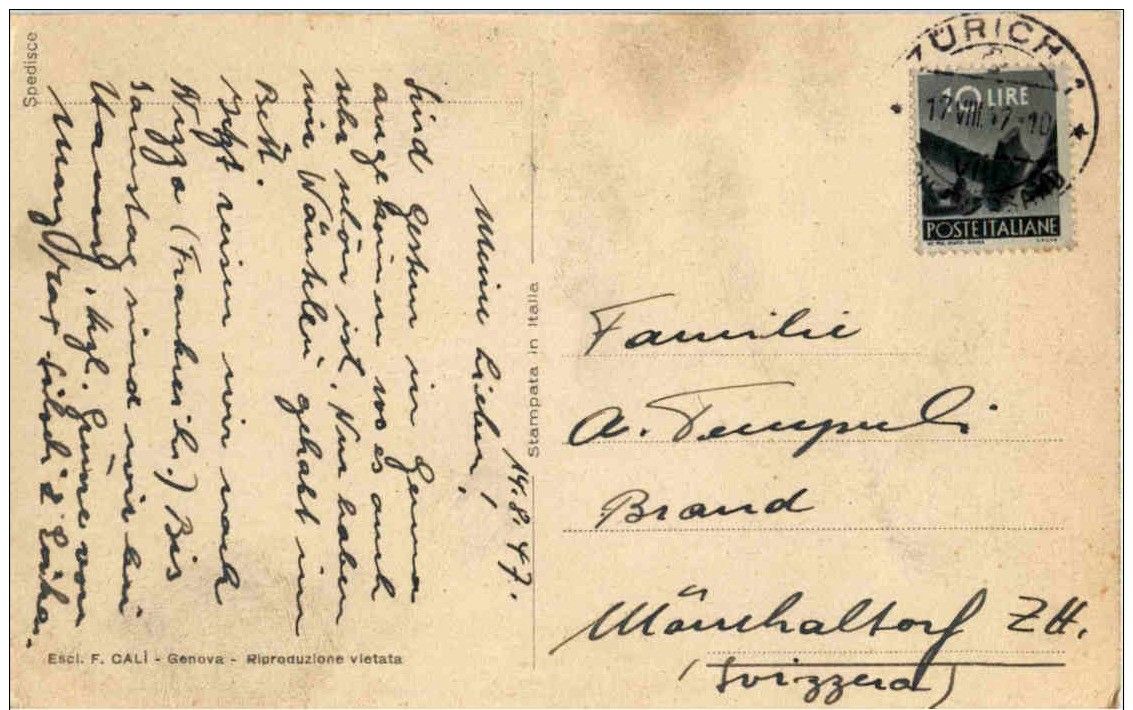 Spedisce
14.8.47.
Meine Lieben!
Sind gestern in Genua
angekommen wo es auch
sehr schön ist. Nur haben
wir Wänteli gehabt im
Bett.
Jetzt reisen wir nach
Nizza (Frankreich.) Bis
Samstag sind wir bei
Hansueli. Hzl. Grüsse von
Marg
Stampata in Italia
Escl. F. CALÌ - Genova - Riproduzione vietata
ZÜRICH 1
17.VIII.47-10
10 LIRE
POSTE ITALIANE
Familie
A. Temperli
Brand
Mönchaltorf ZH.
(Svizzera)